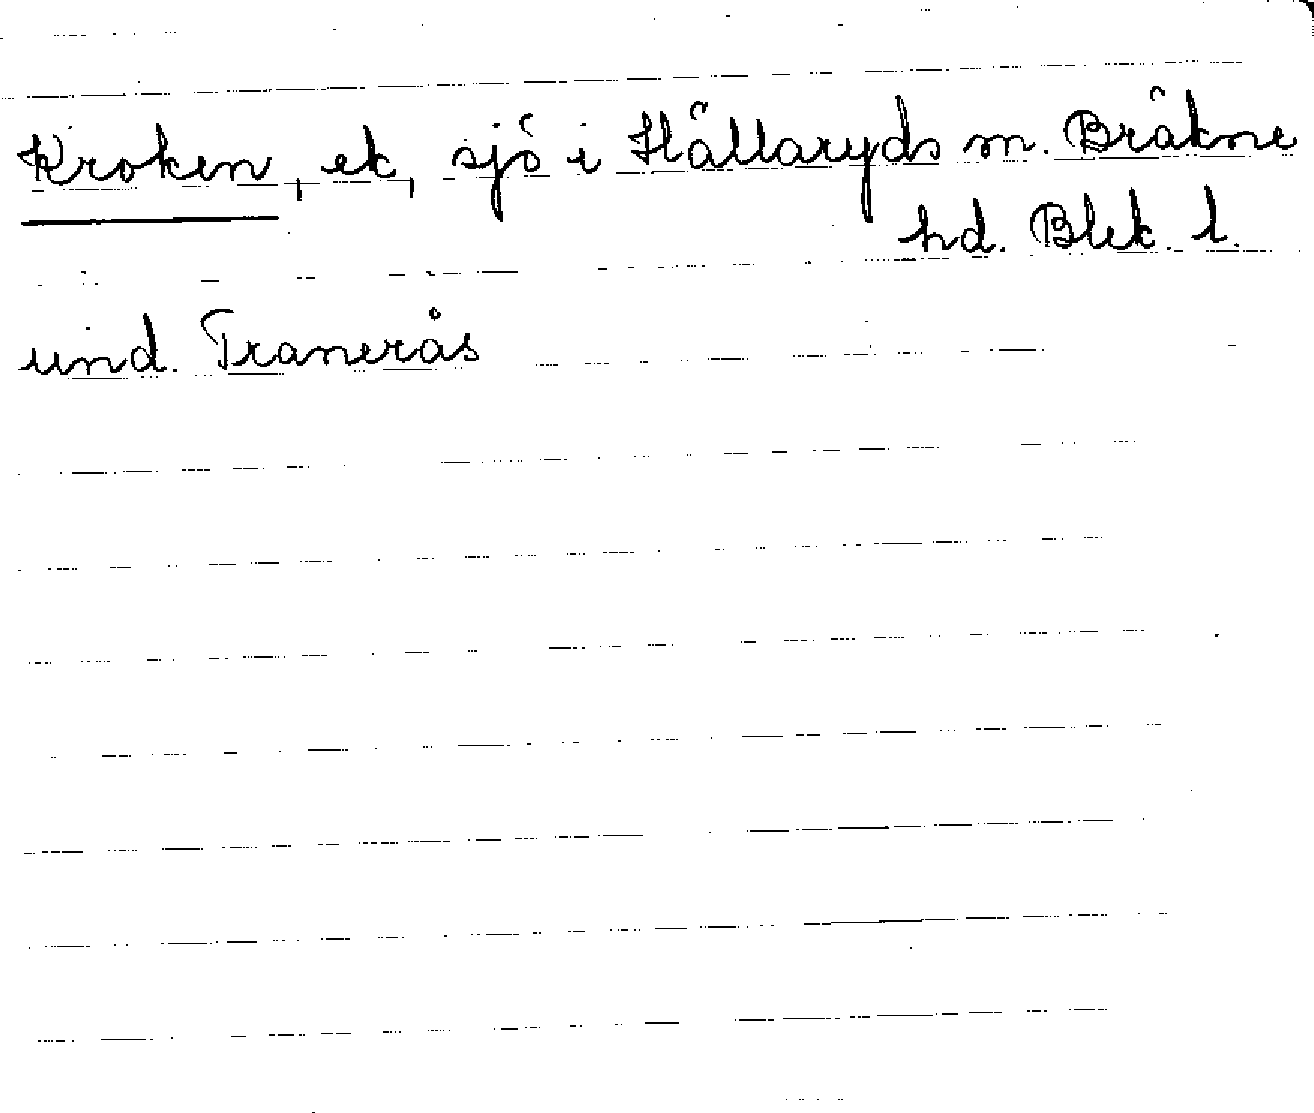 Kroken, ek, sjö i Hällaryds sn. Bräkne
hd. Blek. l.
und. Tranerås